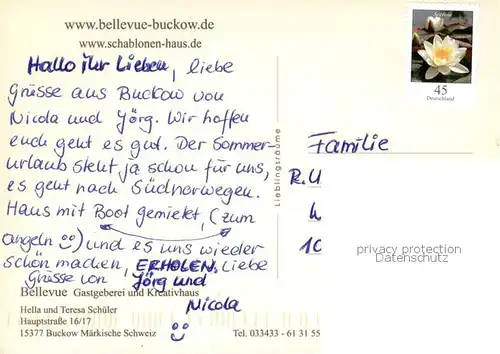 www.bellevue-buckow.de
www.schablonen-haus.de
Hallo ihr Lieben, liebe
Grüsse aus Buckow von
Nicola und Jörg. Wir hoffen
euch geht es gut. Der Sommer-
urlaub steht ja schon für uns,
es geht nach Südnorwegen.
Haus mit Boot gemietet, (zum
angeln) und es uns wieder
schön machen, ERHOLEN. Liebe
Grüsse von Jörg und
Nicola
Bellevue Gastgeberei und Kreativhaus
Hella und Teresa Schüler
Hauptstraße 16/17
15377 Buckow Märkische Schweiz Tel. 033433 - 61 31 55
Lieblingsräume
Seerose
45
Deutschland
Familie
R.U
10
privacy protection
Datenschutz